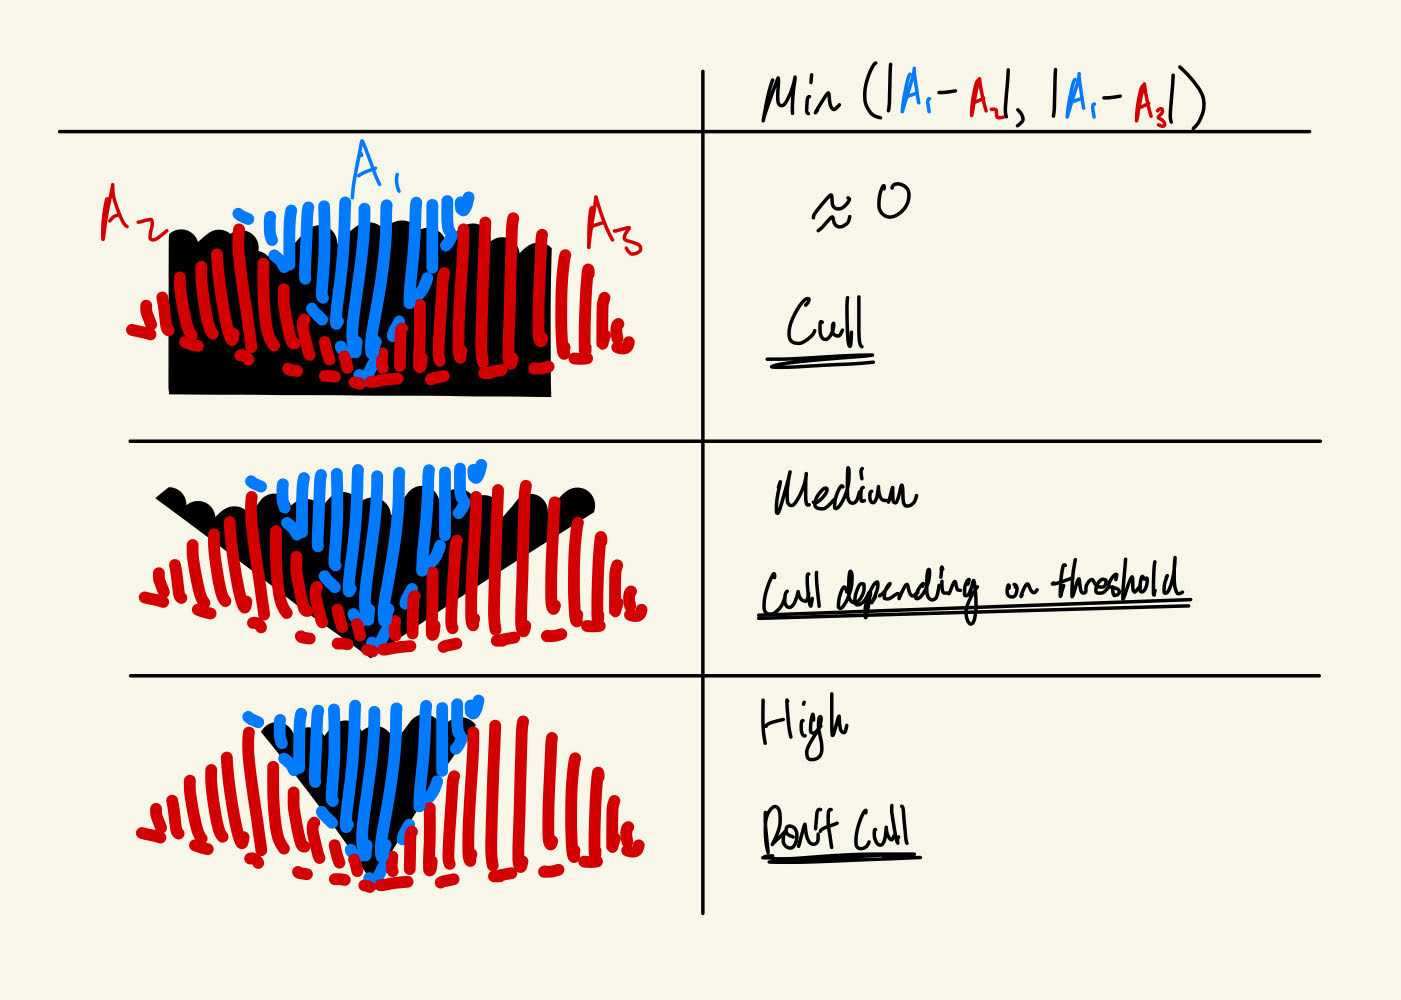 Min (|A₁-A₂|, |A₁-A₃|)
A₁
A₂
A₃
≈ 0
Cull
Medium
Cull depending on threshold
High
Don't Cull